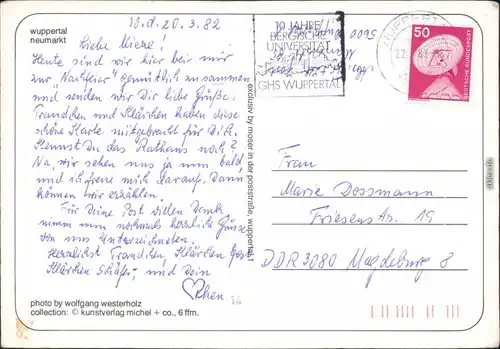 wuppertal
neumarkt
W. d. 20. 3. 82
Liebe Mieze!
Heute sind wir hier bei mir
zur "Nachfeier" gemütlich zusammen
und senden wir Dir liebe Grüße.
Traudchen und Klärchen haben diese
schöne Karte mitgebracht für Dich.
Kennst Du das Rathaus noch?
Na, wir sehen uns ja nun bald
und ich freue mich darauf. Dann
können wir erzählen.
Für Deine Post vielen Dank
nimm nun nochmals herzliche Grüße
von uns Unterzeichneten.
Herzlichst Traudchen, Klärchen
Klärchen Schäfer, und Dein
chen
photo by wolfgang westerholz
collection: © kunstverlag michel + co., 6 ffm.
exclusiv by moser in der poststraße, wuppertal 1
5600
10 JAHRE
BERGISCHE
UNIVERSITÄT
GHS WUPPERTAL
50
DEUTSCHE BUNDESPOST
Frau
Marie Dossmann
Friesenstr. 19
DDR 3080 Magdeburg 8